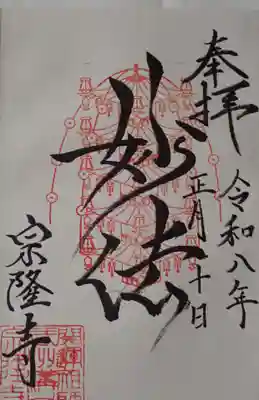 奉拝
令和八年
正月十日
妙法
宗隆寺